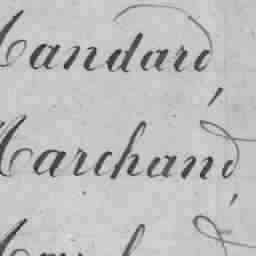 Mandard,
Marchand,